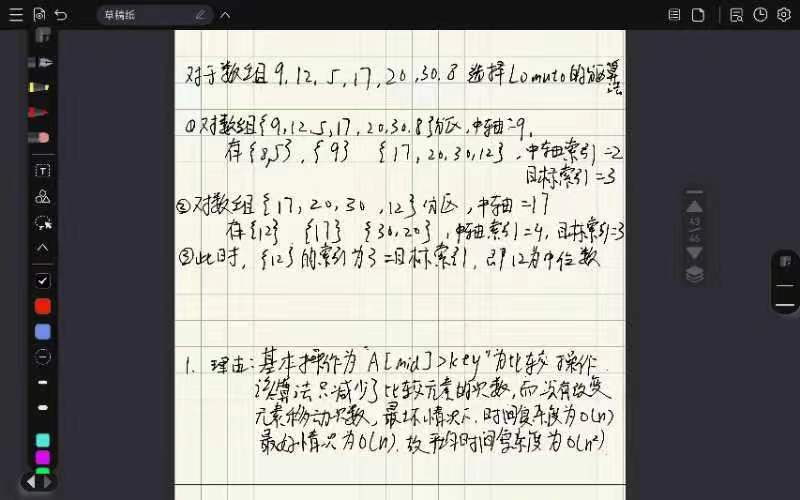 草稿纸
对于数组9,12,5,17,20,30,8 选择Lomuto的分区算法
①对数组{9,12,5,17,20,30,8}分区,中轴=9,
存{8,5},{9} {17,20,30,12},中轴索引=2
目标索引=3
②对数组{17,20,30,12}分区,中轴=17
存{12} {17} {30,20},中轴索引=4,目标索引=3
③此时,{12}的索引为3=目标索引,即12为中位数
43
/46
1. 理由:基本操作为"A[mid]>key"为比较操作
该算法只减少了比较元素的次数,而没有改变
元素移动次数,最坏情况下,时间复杂度为O(n)
最好情况为O(n),故平均时间复杂度为O(n²)